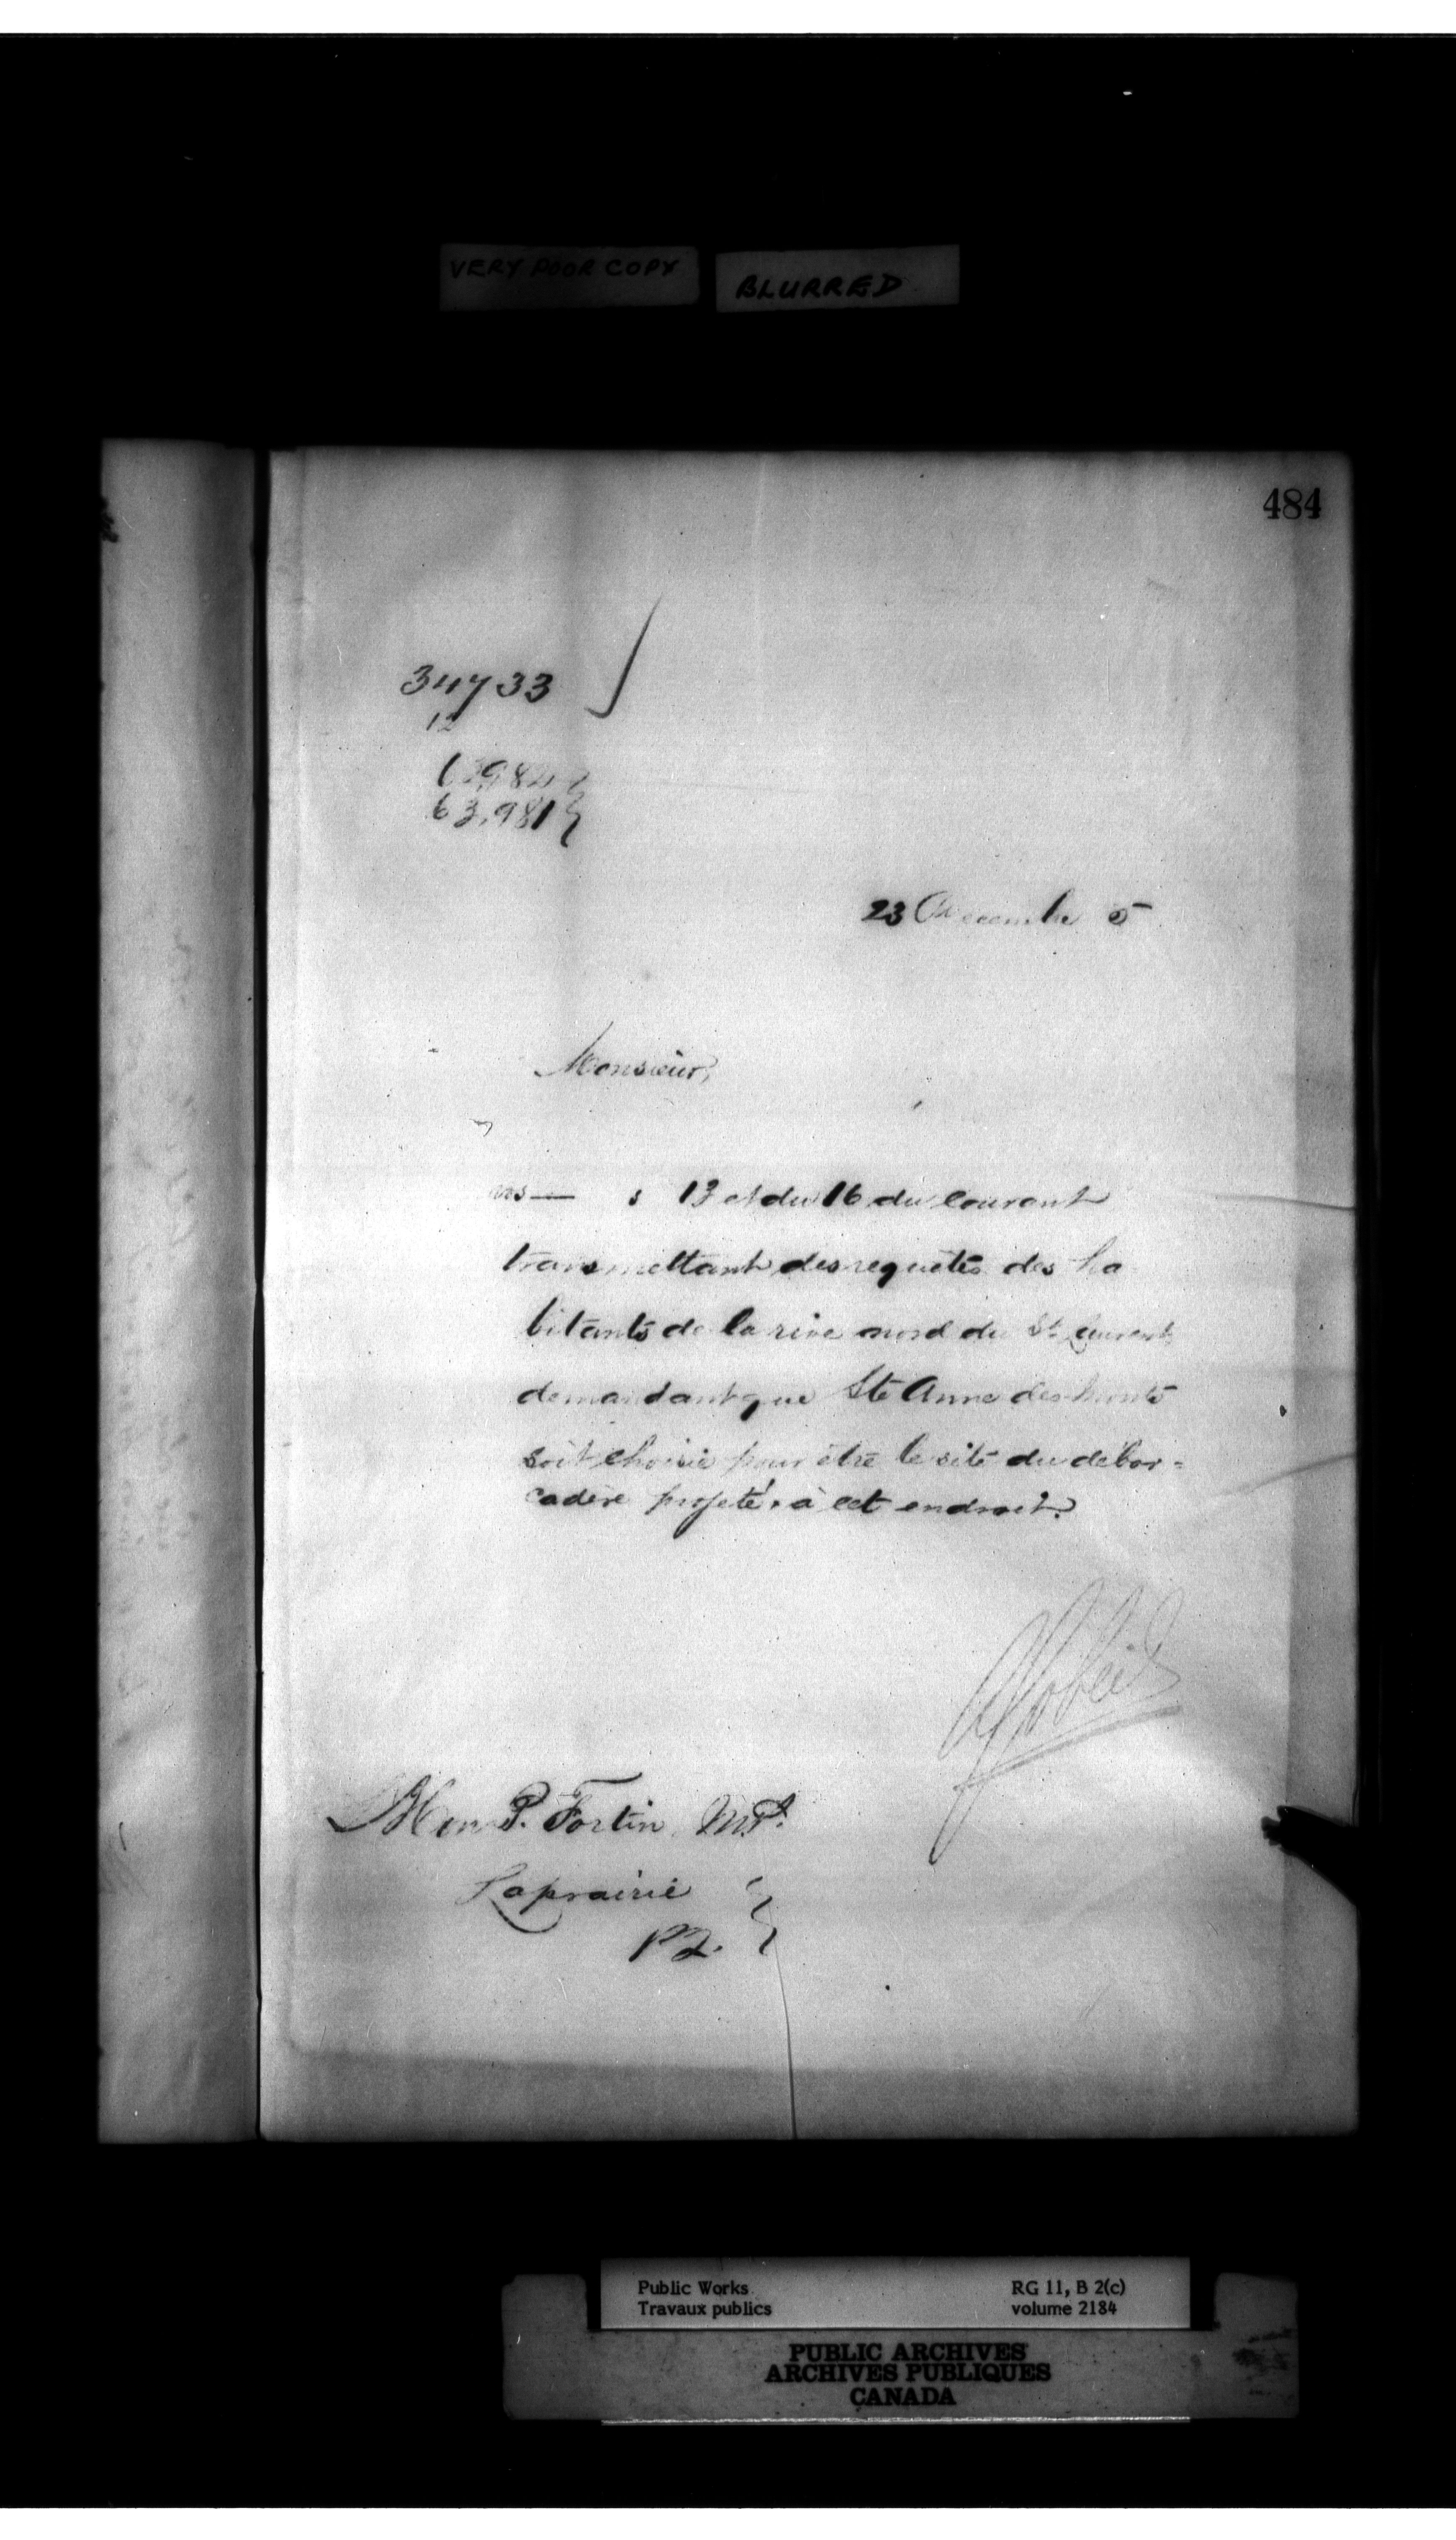 VERY POOR COPY
BLURRED
484
34733
12
63,981
23 Decembre 5
Monsieur,
vos — s 13 et du 16 du courant
transmettant des requêtes des ha
bitants de la rive nord du St Laurent
demandant que Ste Anne des Monts
soit choisie pour être le site du débar=
cadère projeté à cet endroit.
Hon P. Fortin M.P.
Laprairie
P2.
Public Works
Travaux publics
RG 11, B 2(c)
volume 2184
PUBLIC ARCHIVES
ARCHIVES PUBLIQUES
CANADA